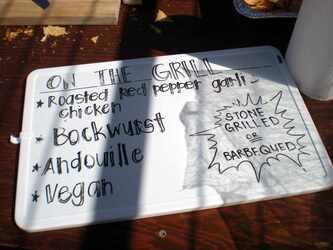 ON THE GRILL
* Roasted red pepper garli-
chicken
* Bockwurst
* Andouille
* Vegan
STONE
GRILLED
OR
BARBEQUED